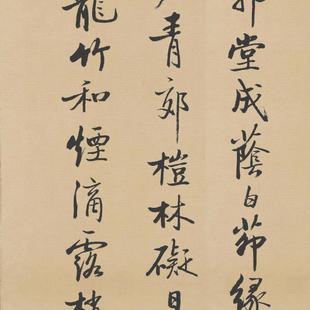 郭堂成蔭白茆緣
青郊榿林礙日
龍竹和煙滴露梢